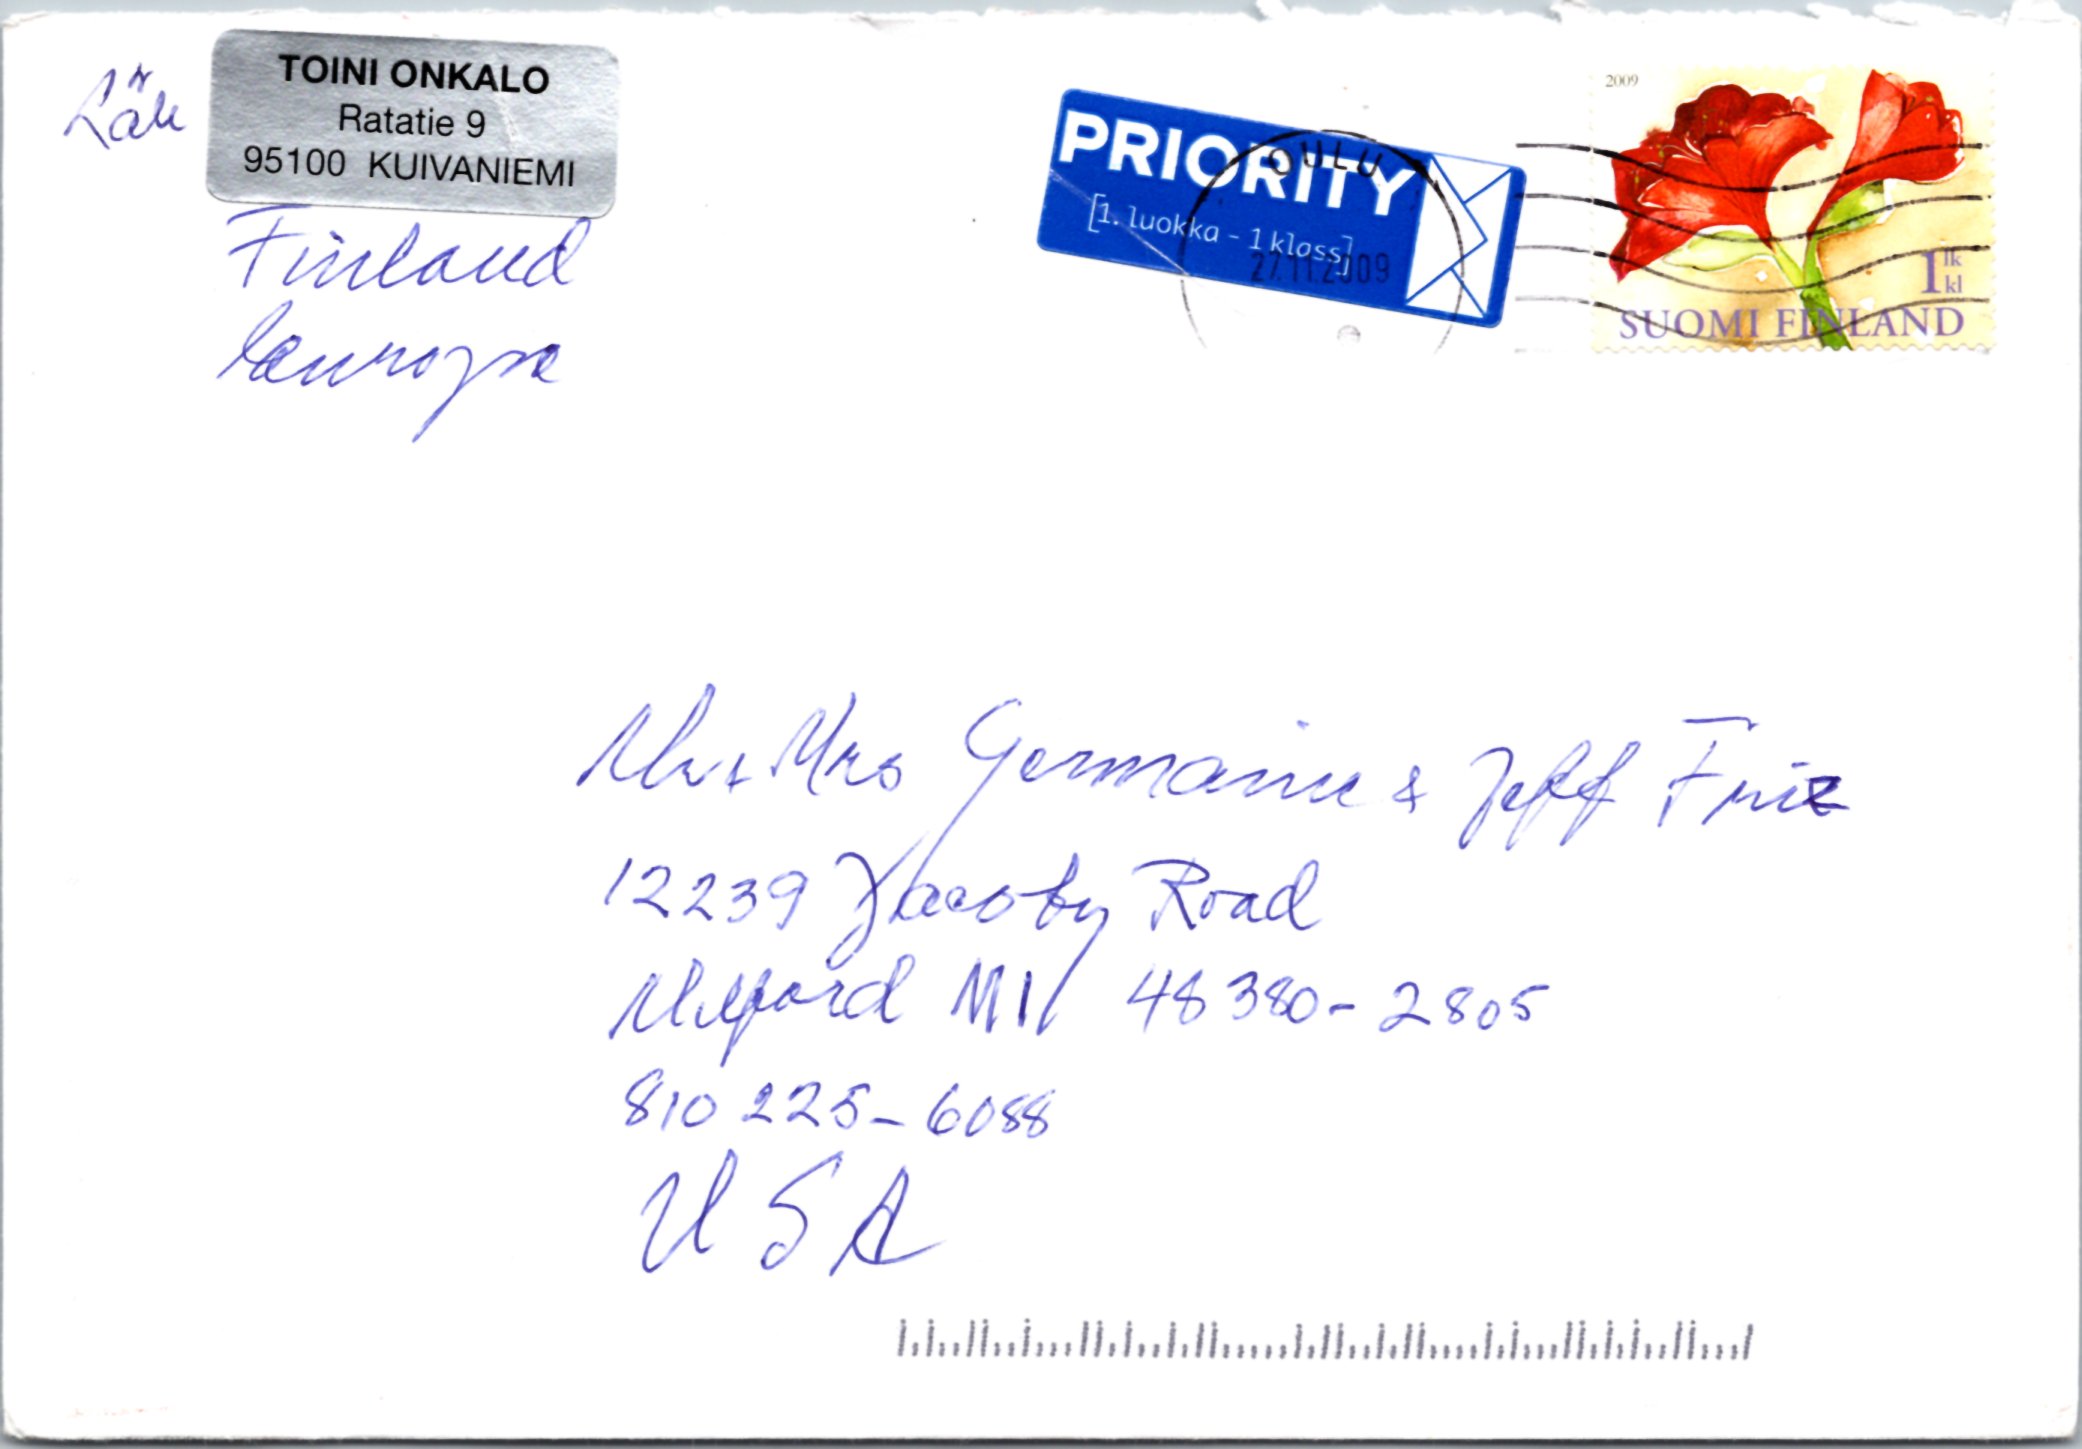 Läh
TOINI ONKALO
Ratatie 9
95100 KUIVANIEMI
Finland
Eurropa
PRIORITY
[1. luokka - 1 klass]
OULU
27.11.2009
2009
1 lk kl
SUOMI FINLAND
Mr + Mrs Germaine & Jeff Friz
12239 Jacoby Road
Milford MI 48380-2805
810 225-6088
USA